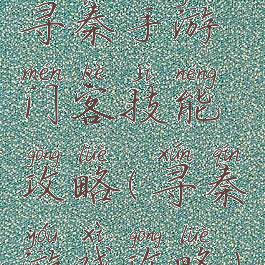 寻秦手游
mén kè jì néng
门客技能
gōng lüè xún qín
攻略(寻秦
yóu xì gōng lüè
游戏攻略)